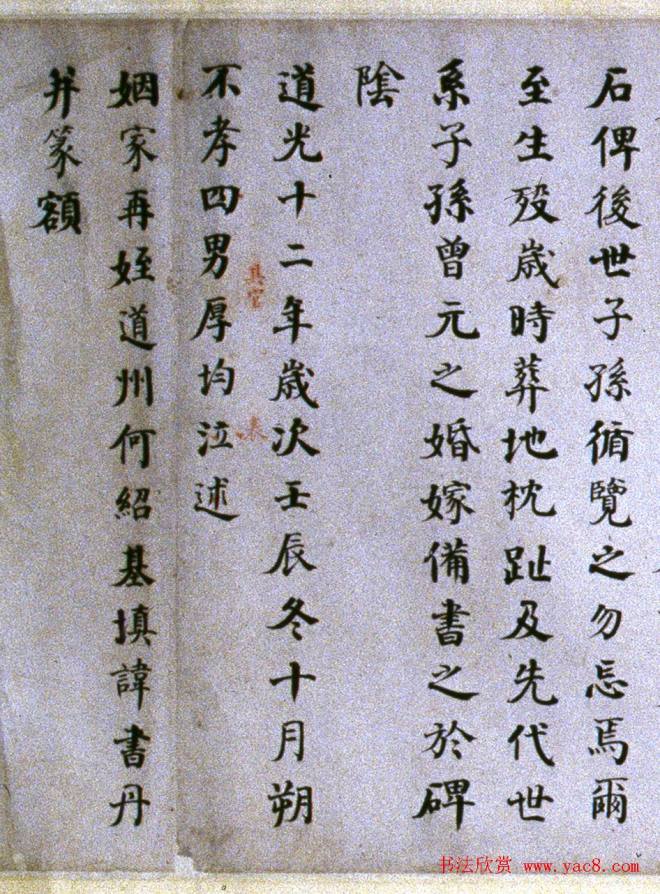 石俾後世子孫循覽之勿忘焉爾
至生歿歲時葬地枕趾及先代世
系子孫曾元之婚嫁備書之於碑
陰
道光十二年歲次壬辰冬十月朔
不孝四男厚均泣述
姻家再姪道州何紹基填諱書丹
并篆額
具官
表
书法欣赏 www.yac8.com